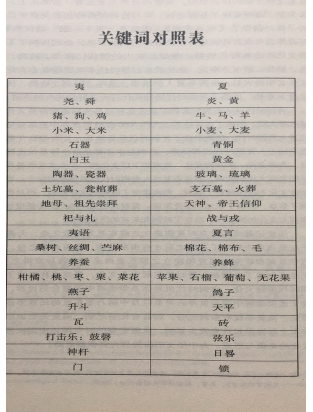 关键词对照表
夷 夏
尧、舜 炎、黄
猪、狗、鸡 牛、马、羊
小米、大米 小麦、大麦
石器 青铜
白玉 黄金
陶器、瓷器 玻璃、琉璃
土坑墓、瓮棺葬 支石墓、火葬
地母、祖先崇拜 天神、帝王信仰
祀与礼 战与戎
夷语 夏言
桑树、丝绸、苎麻 棉花、棉布、毛
养蚕 养蜂
柑橘、桃、枣、栗、菜花 苹果、石榴、葡萄、无花果
燕子 鸽子
升斗 天平
瓦 砖
打击乐：鼓磬 弦乐
神杆 日晷
门 锁